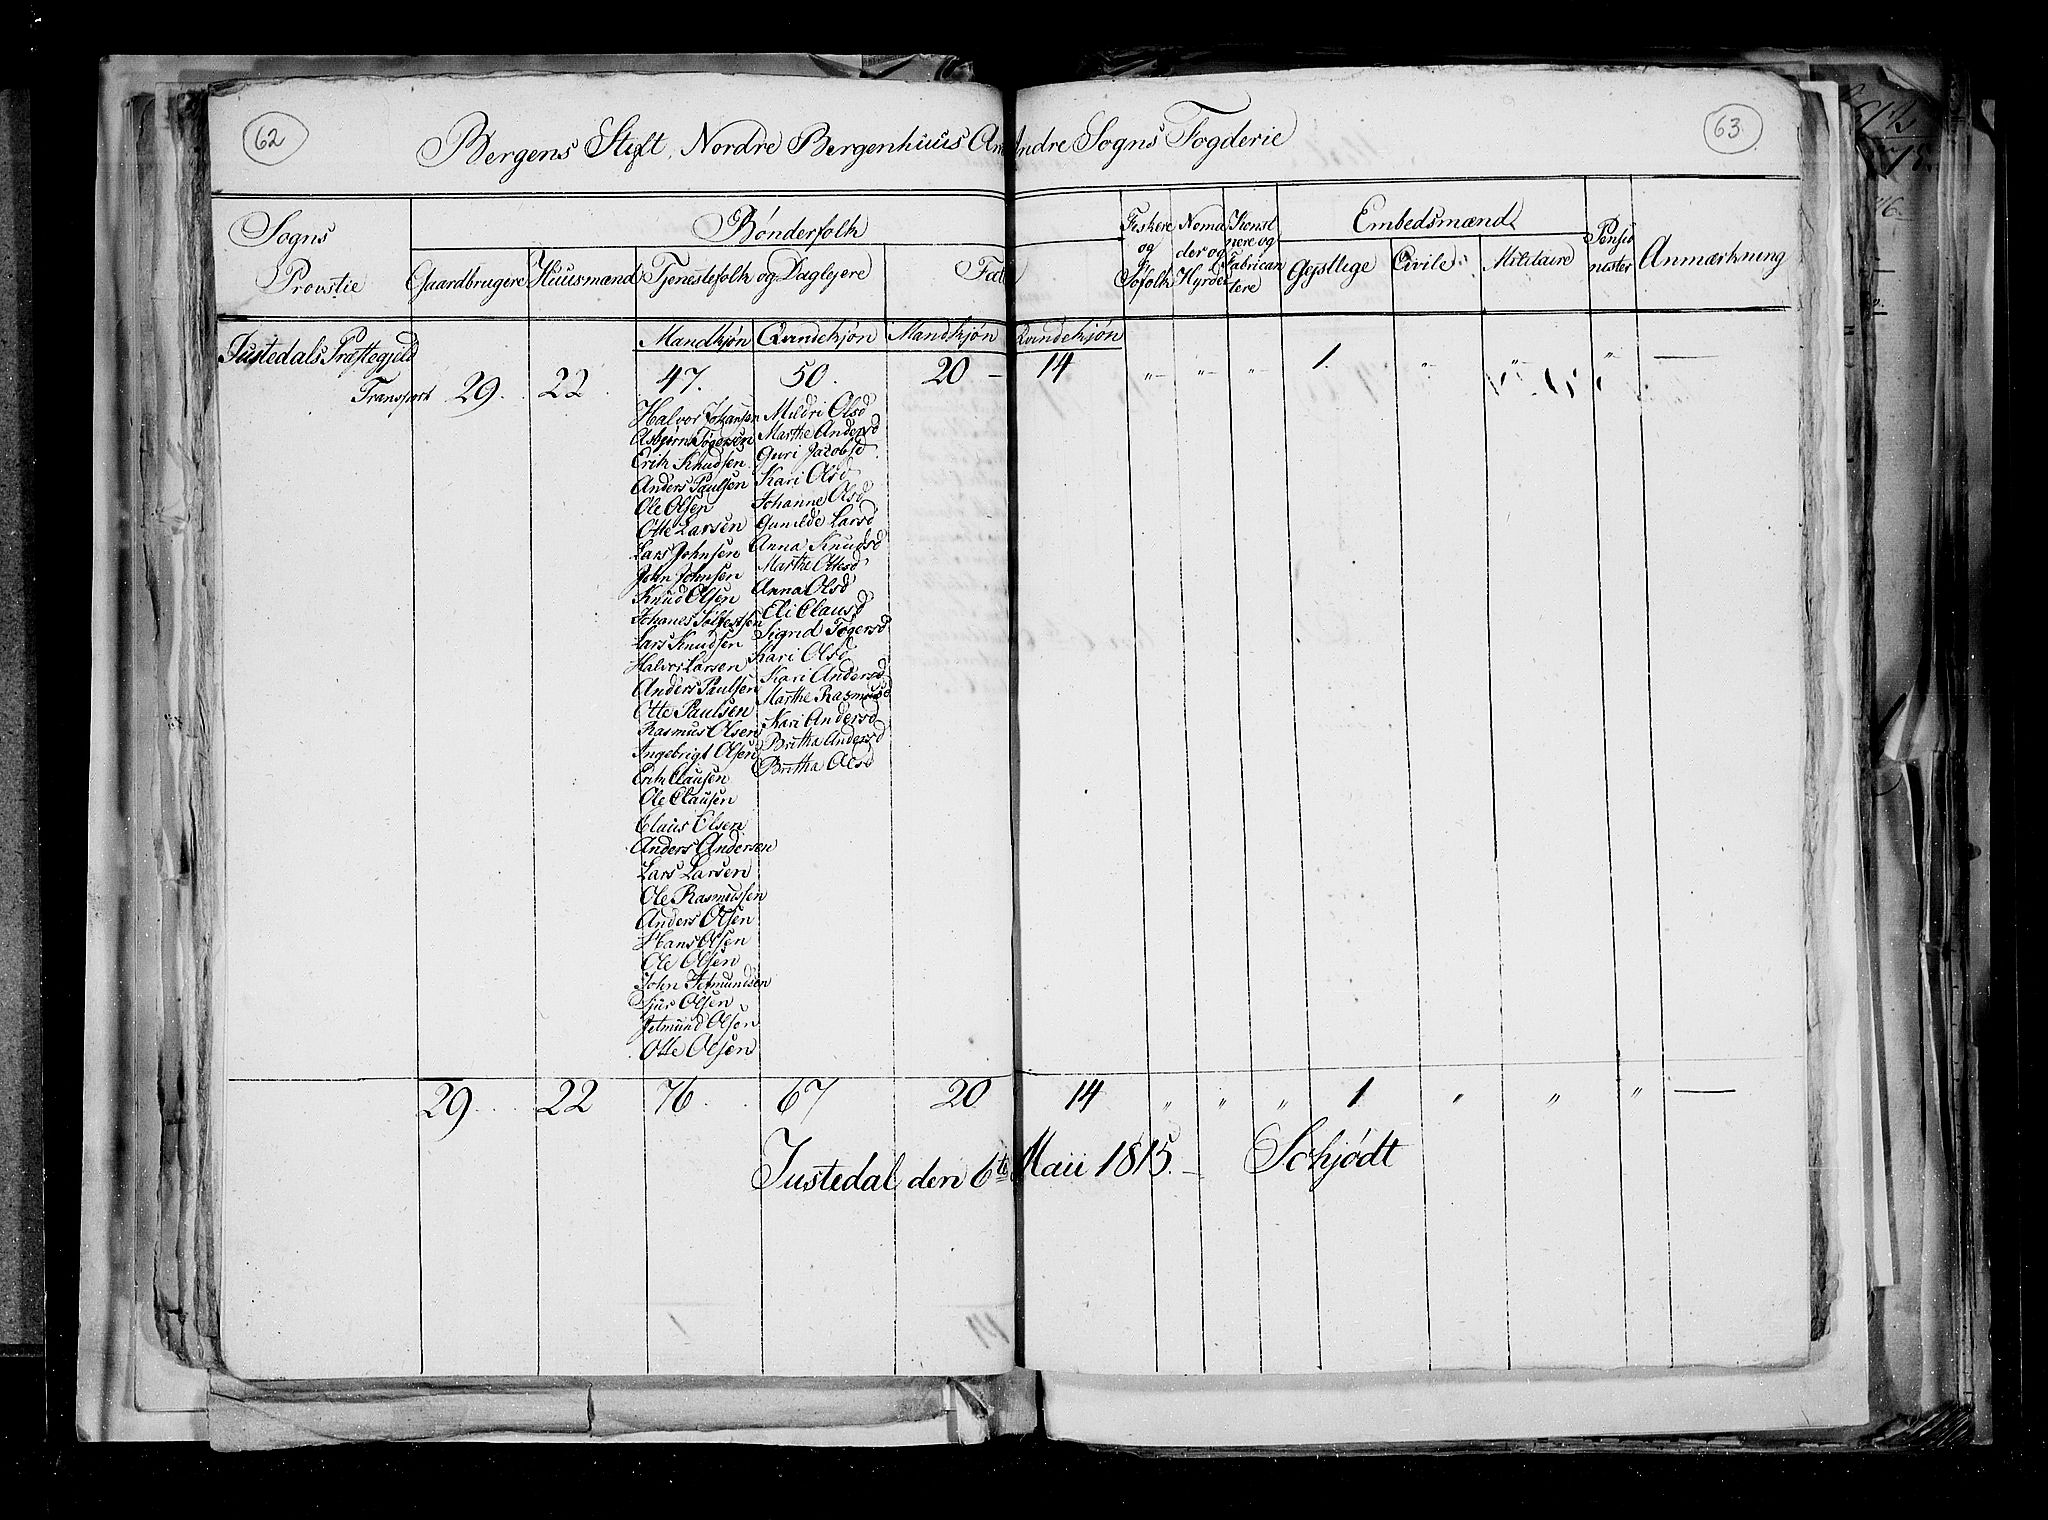 62
63
Bergens Stift, Nordre Bergenhuus Am Indre Sogns Fogderie
Sogns Provstie
Bønderfolk
Gaardbrugere
Huusmænd
Tjenestefolk og Daglejere
Fat
Fiskere og Søfolk
Noma der og Hyrder
Konst nere og Fabrican tere
Embedsmænd
Gejstlige
Civile
Militaire
Pensio nister
Anmærkning
Mandkjøn Qvindekjøn Mandkjøn Qvindekjøn
Justedals Præstegjeld
Transport 29. 22. 47. 50. 20 – 14 „ „ „ 1. „ „ „ —
Halvor Johansen Mildri Olsd
Asbjørn Tøgersen Marthe Andersd
Erik Knudsen Guri Jacobsd
Anders Paulsen Kari Olsd
Ole Olsen Johanne Olsd
Otte Larsen Gunilde Larsd
Lars Johnsen Anna Knudsd
John Johnsen Marthe Ottesd
Knud Olsen Anna Olsd
Johanes Solfestsen Eli Clausd
Lars Knudsen Sigrid Tøgersd
Halvor Larsen Kari Olsd
Anders Paulsen Kari Andersd
Otte Paulsen Marthe Rasmusd
Rasmus Olsen Kari Andersd
Ingebrigt Olsen Britha Andersd
Erik Clausen Britha Olsd
Ole Clausen
Claus Olsen
Anders Andersen
Lars Larsen
Ole Rasmussen
Anders Olsen
Hans Olsen
Ole Olsen
John Jetmundsen
Sjur Olsen
Jetmund Olsen
Otte Olsen
29. 22 76. 67 20 14 „ „ „ 1 „ „ „ —
Justedal den 6te Maii 1815. – Schjødt